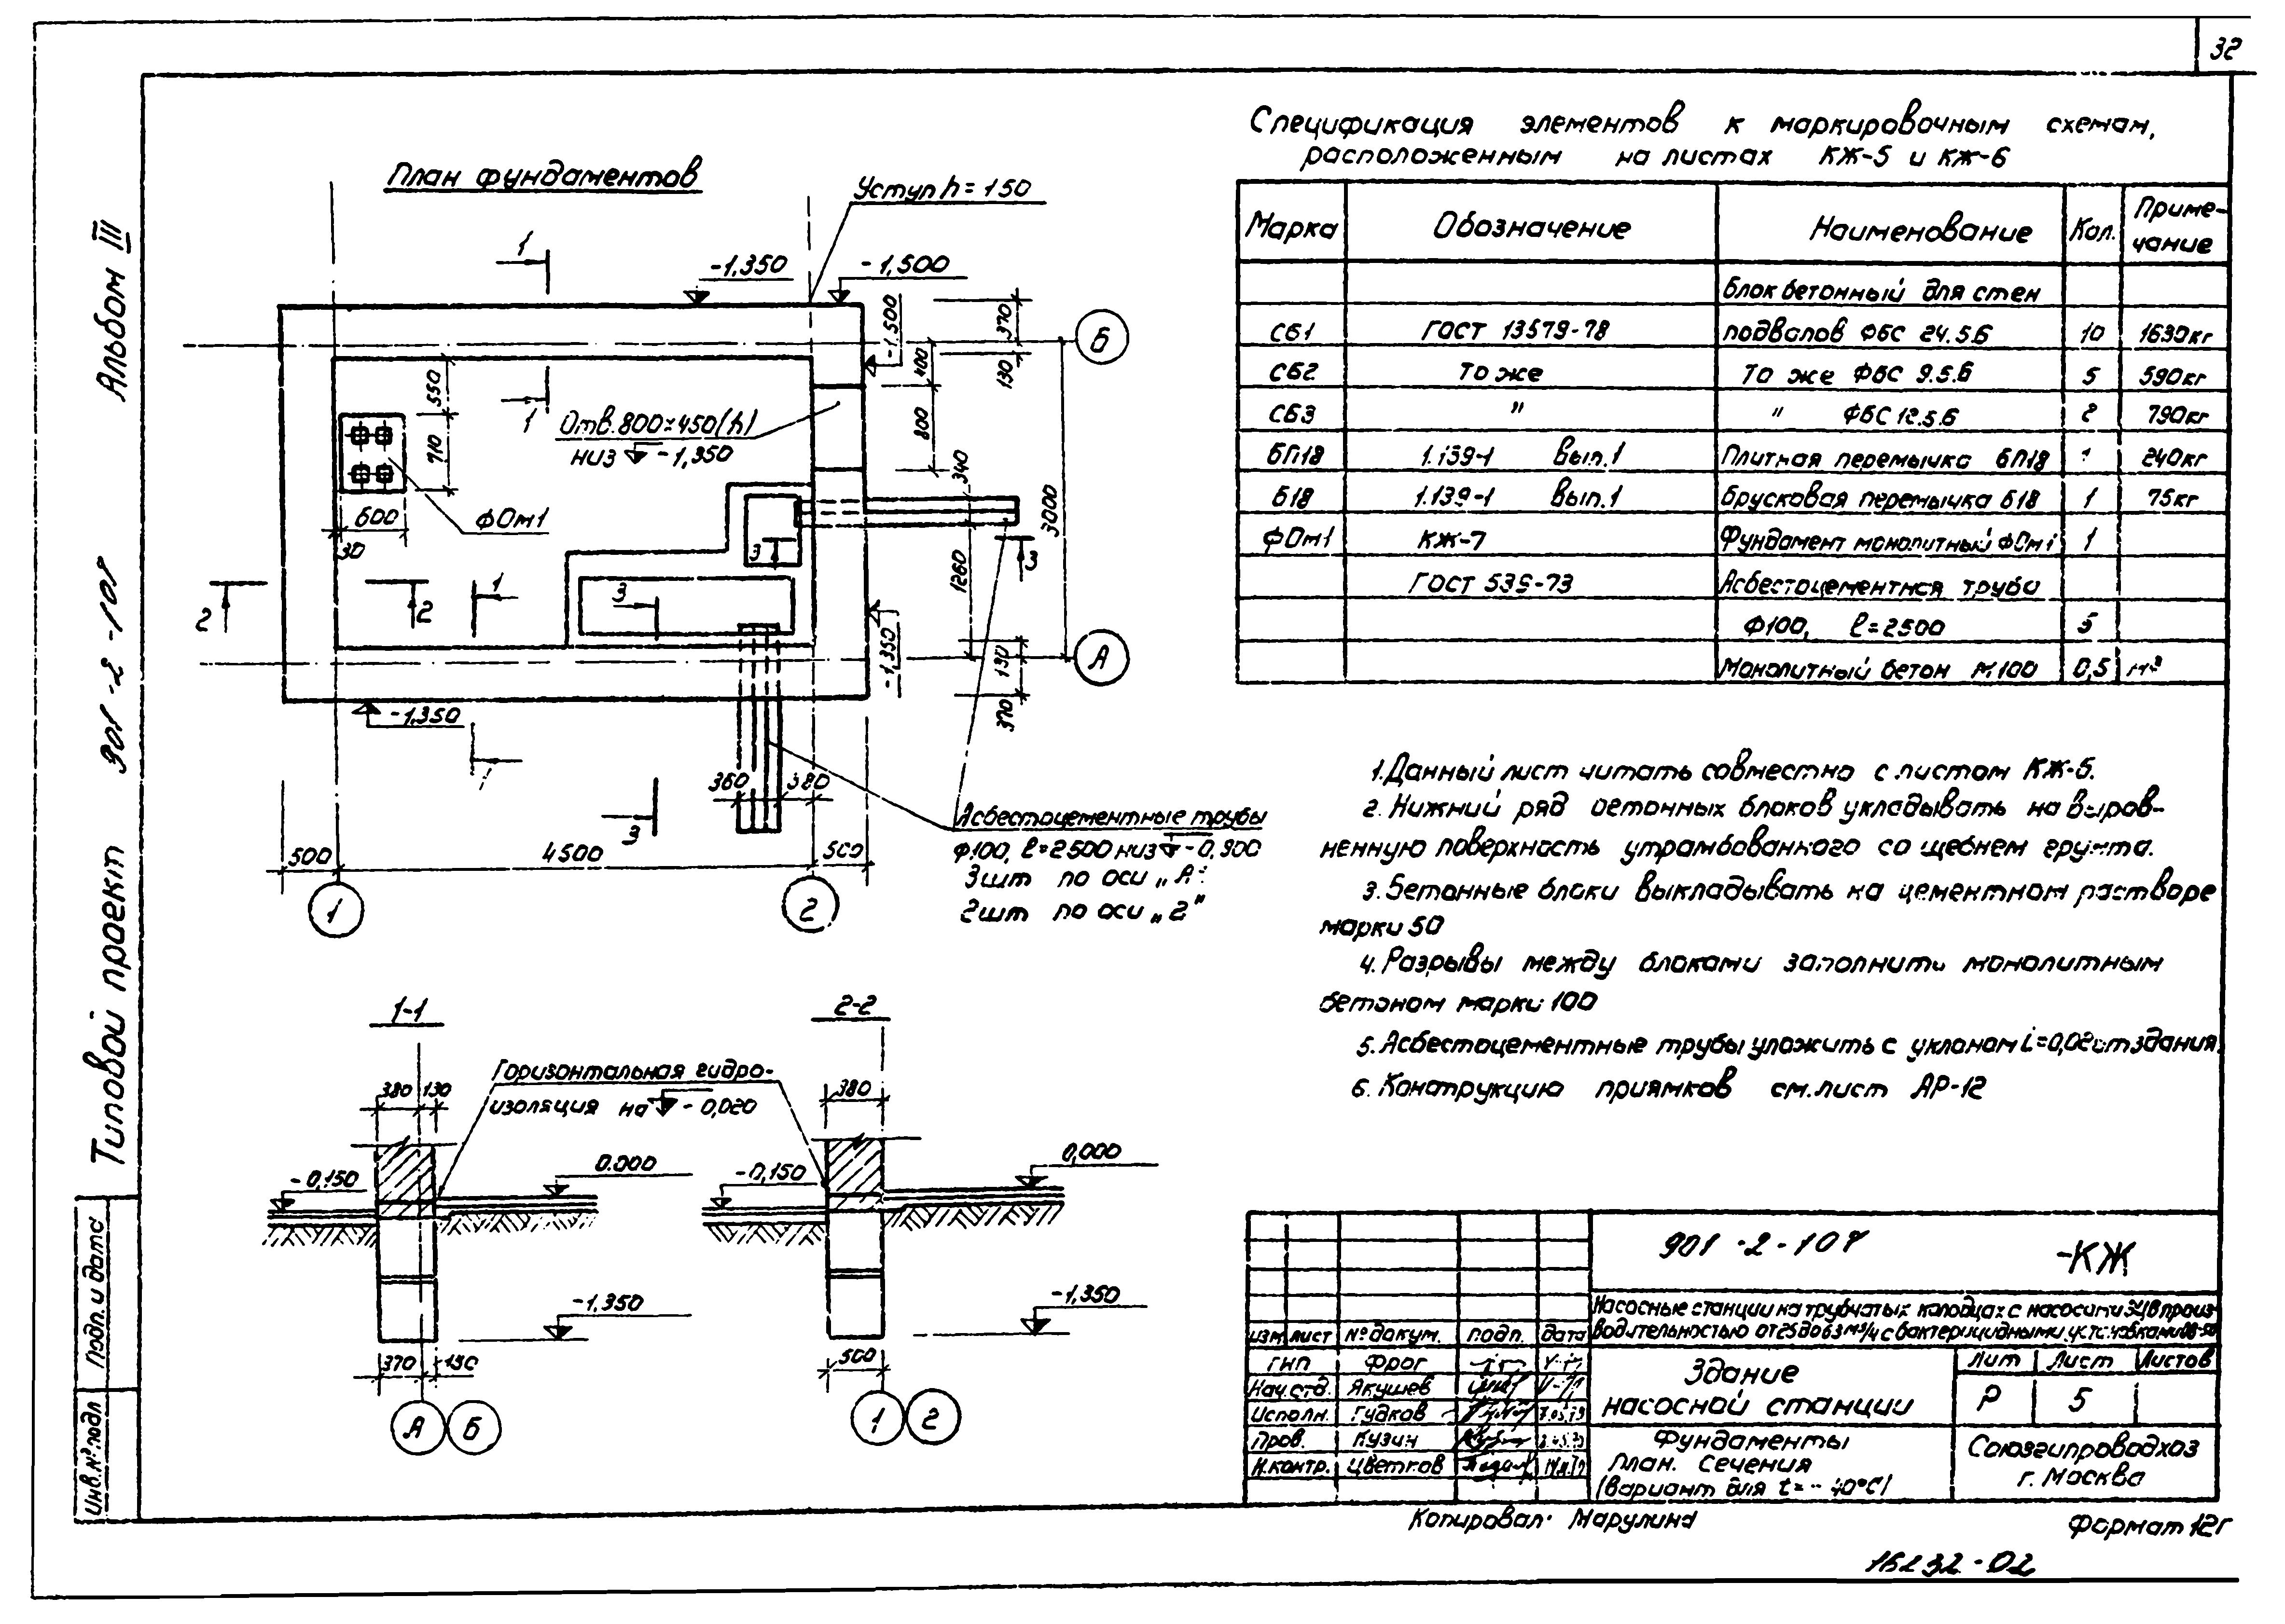 32
Альбом III
Типовой проект 901-2-107
Подп. и дата
Инв. № подл
План фундаментов
Уступ h = 150
-1,350
-1,500
-1.500
1
370
Б
400
130
550
1
Отв. 800×450(h)
низ -1,350
800
710
340
3000
600
ФОм1
30
3
3
1260
2
2
1
3
А
-1,350
130
-1,350
370
360
380
3
Асбестоцементные трубы
ф100, ℓ=2500 низ -0,900
3шт по оси „А"
2шт по оси „2"
500
4500
500
1
2
1-1
2-2
Горизонтальная гидро-
изоляция на -0,020
380
130
380
-0,150
0.000
-0,150
0,000
-1,350
-1,350
370
130
500
А
Б
1
2
Спецификация элементов к маркировочным схемам,
расположенным на листах КЖ-5 и КЖ-6
Марка
Обозначение
Наименование
Кол.
Приме-
чание
Блок бетонный для стен
СБ1 ГОСТ 13579-78 подвалов ФБС 24.5.6 10 1630кг
СБ2 То же То же ФБС 9.5.6 5 590кг
СБ3 " " ФБС 12.5.6 2 790кг
БП18 1.139-1 Вып.1 Плитная перемычка БП18 1 240кг
Б18 1.139-1 Вып.1 Брусковая перемычка Б18 1 75кг
ФОм1 КЖ-7 Фундамент монолитный ФОм1 1
ГОСТ 539-73 Асбестоцементная труба
Ф100, ℓ=2500 5
Монолитный бетон М100 0,5 м³
1. Данный лист читать совместно с листом КЖ-6.
2. Нижний ряд бетонных блоков укладывать на выров-
ненную поверхность утрамбованного со щебнем грунта.
3. Бетонные блоки выкладывать на цементном растворе
марки 50
4. Разрывы между блоками заполнить монолитным
бетоном марки 100
5. Асбестоцементные трубы уложить с уклоном i=0,02 от здания
6. Конструкцию приямков см. лист АР-12
901-2-107 -КЖ
Насосные станции на трубчатых колодцах с насосами ЭЦВ произ-
водительностью от 25 до 63 м³/ч с бактерицидными установками
Изм. лист № докум. подп. дата
ГИП Фрог
Нач. отд. Якушев
Исполн. Гудков
Пров. Кузин
Н.контр. Цветков
Здание
насосной станции
Лит Лист Листов
Р 5
Фундаменты
План. Сечения
(вариант для t = -40°C)
Союзгипроводхоз
г. Москва
Копировал: Марулина
Формат 12г
16232-02